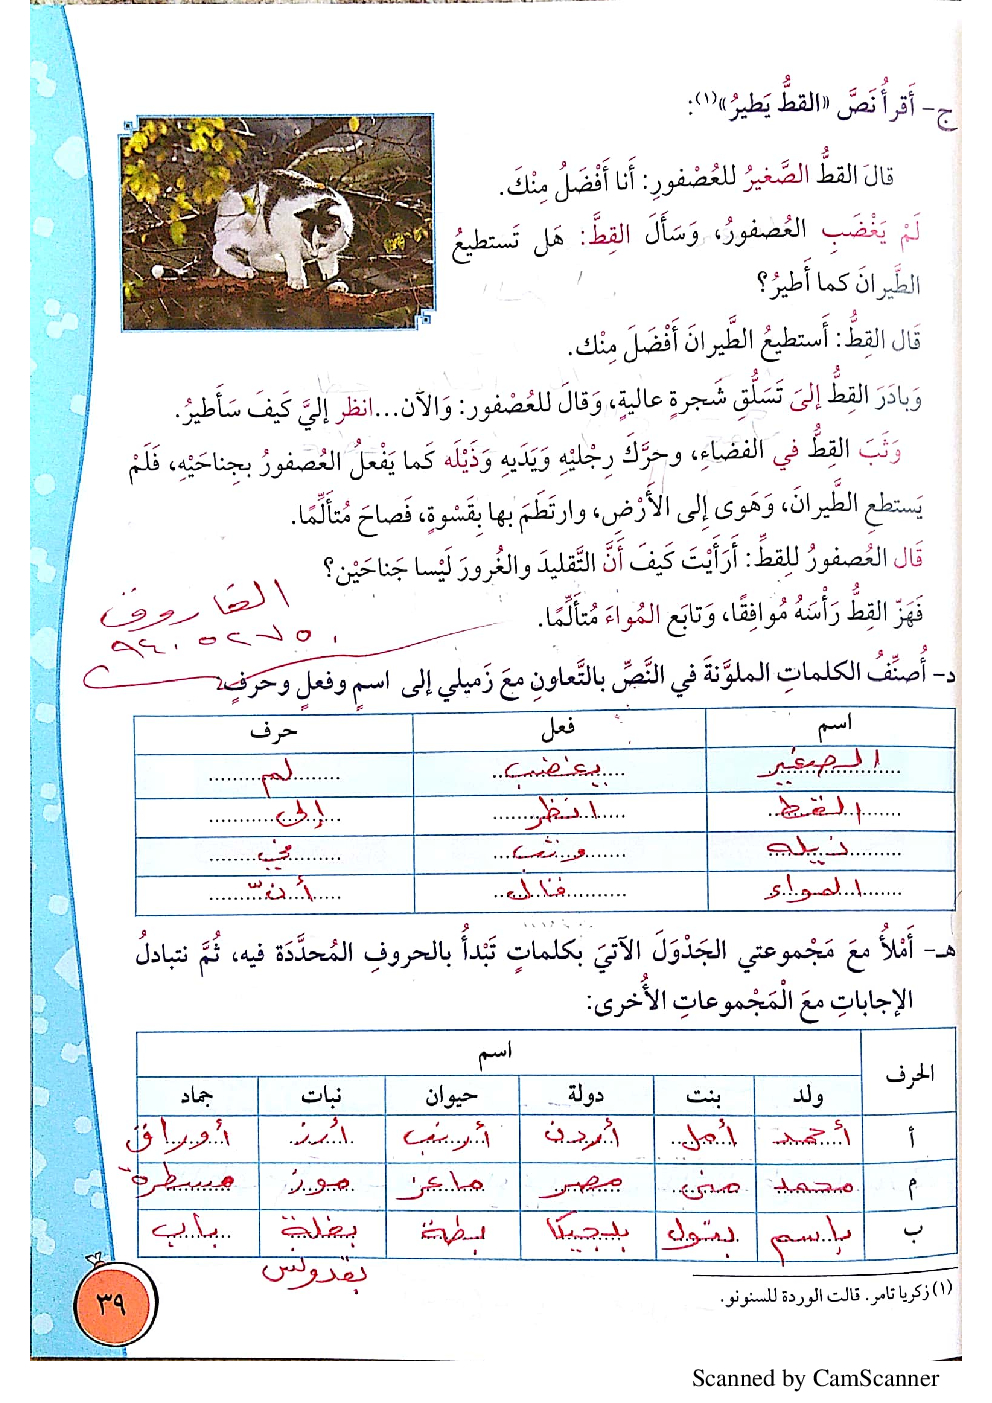 ج- أَقرأُ نَصَّ «القطُّ يَطيرُ»(١):
قالَ القطُّ الصَّغيرُ للعُصْفورِ: أَنا أَفْضَلُ مِنْكَ.
لَمْ يَغْضَبِ العُصفورُ، وَسَأَلَ القِطَّ: هَل تَستطيعُ
الطَّيرانَ كما أَطيرُ؟
قَال القِطُّ: أَستطيعُ الطَّيرانَ أَفْضَلَ مِنْك.
وَبادَرَ القِطُّ إلىَ تَسَلُّقِ شَجرةٍ عاليةٍ، وَقالَ للعُصْفور: وَالآن...انظر إليَّ كَيفَ سَأَطيرُ.
وَثَبَ القِطُّ في الفضاءِ، وحرَّكَ رِجليْهِ وَيَدَيهِ وَذَيْلَه كما يَفْعلُ العصفورُ بِجناحَيْهِ، فَلَمْ
يَستطعِ الطَّيرانَ، وَهَوى إِلى الأَرْضِ، وارتَطَمَ بها بِقَسْوةٍ، فَصاحَ مُتأَلِّمًا.
قَال العُصفورُ للقِطِّ: أَرَأَيْتَ كَيفَ أَنَّ التَّقليدَ والغُرورَ لَيسا جَناحَيْن؟
فَهَزّ القِطُّ رَأْسَهُ مُوافقًا، وَتابَع المُواءَ مُتأَلِّمًا.
الفاروق
٩٤٠٥٢٧٥٠
د- أُصنِّفُ الكلماتِ الملوَّنةَ في النَّصِّ بالتَّعاونِ معَ زَميلي إلى اسمٍ وفعلٍ وحرفٍ.
اسم فعل حرف
الصغير يغضب لم
القط انظر إلى
ذيله وثب في
المواء قال أنّ
هـ- أَمْلأُ معَ مَجْموعتي الجَدْوَلَ الآتيَ بكلماتٍ تَبْدأُ بالحروفِ المُحدَّدَة فيه، ثُمَّ نتبادلُ
الإجاباتِ معَ الْمَجْموعاتِ الأُخرى:
الحرف اسم
ولد بنت دولة حيوان نبات جماد
أ أحمد أمل أردن أرنب أرز أوراق
م محمد منى مصر ماعز موز مسطرة
ب باسم بتول بلجيكا بطة بقلة باب
بقدونس
(١) زكريا تامر. قالت الوردة للسنونو.
٣٩
Scanned by CamScanner